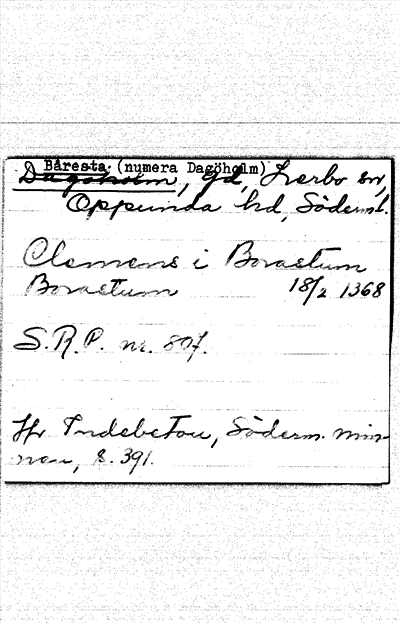 Båresta (numera Dagöholm)
Dagöholm, gd, Lerbo sn,
Oppunda hd, Söderml.
Clemens i Borastum
Borastum 18/2 1368
S.R.P. nr. 807.
Jfr Indebetou, Söderm. min-
nen, s. 391.